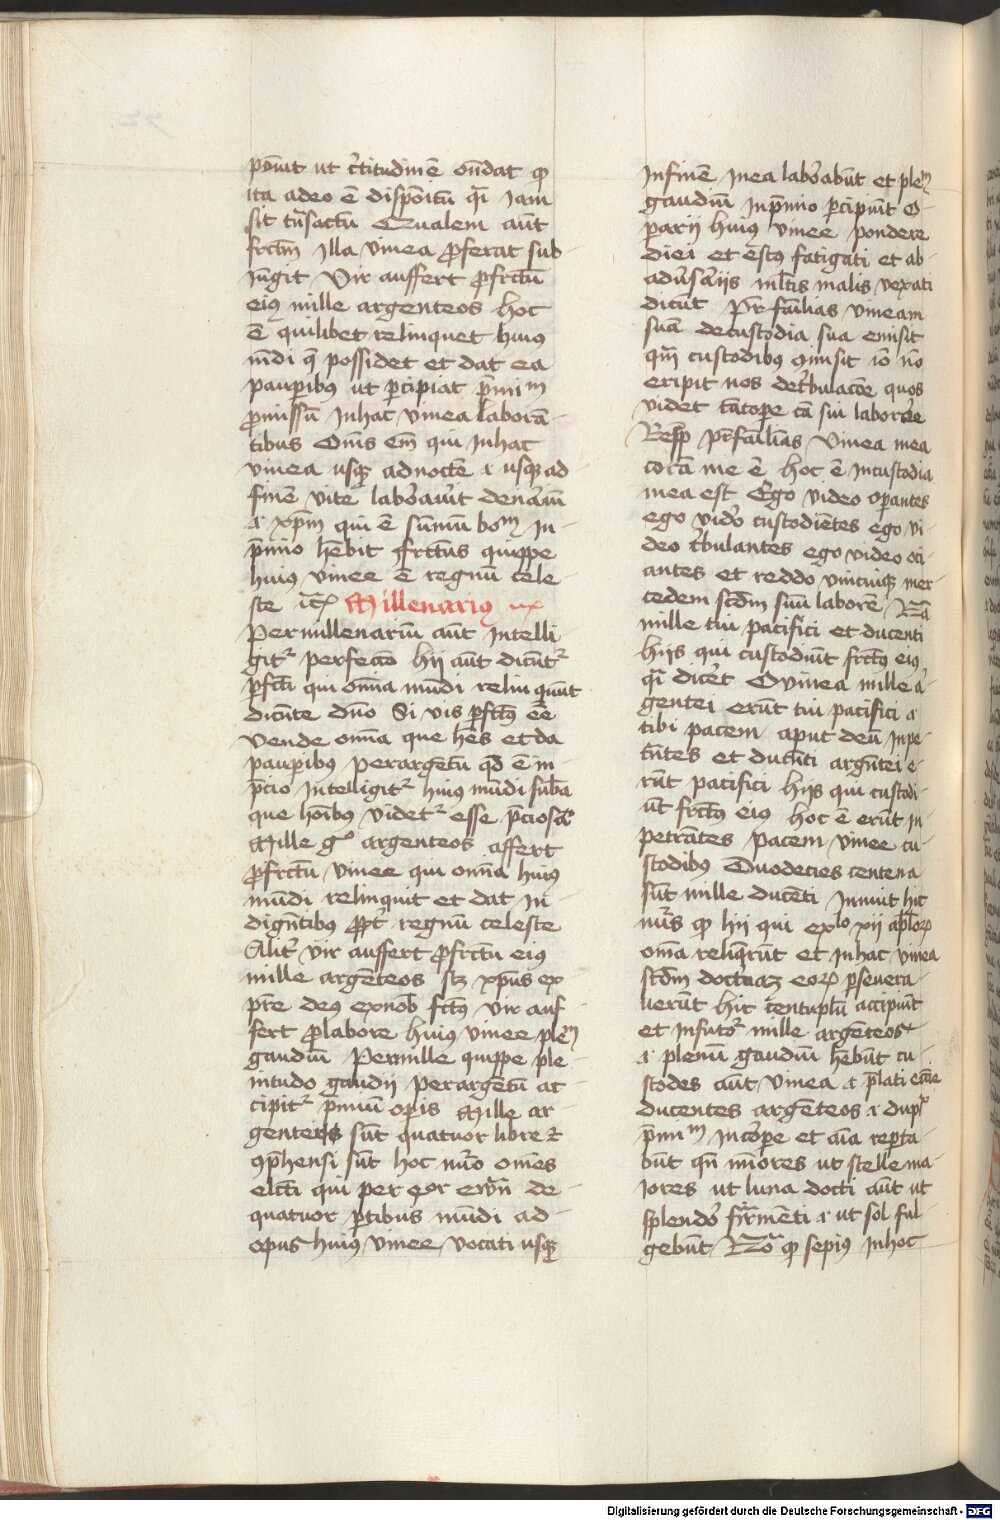 ponit ut c̄titudinē on̄dat ꝙ
ita adeo ē disp̄oitū qͥ Jam
sit tn̄sactū Qualem aūt
fructm̄ Jlla vinea ꝓferat sub
iu̅git Vir auffert ꝓfrc̄tu
eiꝰ mille argenteos hoc
ē quilibet relinquet huiꝰ
mūdi q̄ possidet et dat ea
pauꝑibꝰ ut ꝑcipiat p̄miᵐ
ꝓmissū Jnhac vinea laborā
tibus Om̄s em̄ qui Jnhac
vinea usqꝫ adnoctē ⁊ usqꝫ ad
finē vite labōauīt denāiū
⁊ xp̄m qui ē sūmū boᵐ Jn
p̄mio hēbit fructus quippe
huiꝰ vinee ē regnū cele
ste Millenariꝰ
Permillenariū aūt Jntelli
git᷑ perfectō hij aūt dicūt᷑
ꝑfct̄i qui om̄ia mūdi relinquūt
dicūte dn̄o Si vis ꝑfct̄ꝰ eē
vende om̄ia que hēs et da
pauꝑibꝰ perargētū qd̄ ē in
p̄cio Jntelligit᷑ huiꝰ mūdi sub̄a
que hoībꝰ videt᷑ esse p̄ciosa
Mille gͦ argenteos affert
ꝓfrc̄tu vinee qui om̄ia huiꝰ
mūdi relinquit et dat Jn
dign̄tibus ꝓpt̄ regnū celeste
Alit̄ vir auffert ꝓfrc̄tu eiꝰ
mille argēteos scꝫ xp̄us ex
pr̄e deꝰ exnob̄ fct̄ꝰ vir auf
fert ꝓlabore huiꝰ vinee plēᵐ
gaudiū Permille quippe ple
nitudo gaudij perargētū ac
cipit᷑ p̄miū opīs Mille ar
genteos sūt quatuor libre ⁊
ꝯp̄hensi sūt hoc nūo om̄es
elct̄i qui per eor de
quatuor ꝑtibus mūdi ad
opus huiꝰ vinee vocati usqꝫ
Jnfinē Jnea labōabūt et pleᵐ
gaudiū Jnp̄mio ꝑcipiūt O
ꝑarij huiꝰ vinee pondere
diei et estꝰ fatigati et ab
adūsāiis ml̄tis malis vexati
dicūt Pr̄ fāilias vineam
suā decustodia sua emisit
qm̄ custodibꝰ ꝯmisit iō nō
eripit nos det̄bulacōe quos
videt tātoꝑe cā sui laborare
Resp̄ pr̄familias Vinea mea
corā me ē hoc ē Jncustodia
mea est Ego video oꝑantes
ego vidō custodiētes ego vi
deo t̄bulantes ego video oci
antes et reddo vnicuiqꝫ mer
cedem scd̄m suū laborē
mille tui pacifici et ducenti
hijs qui custodiūt frct̄ꝰ eiꝰ
qͥ dicēt O vinea mille ar
gentei erūt tui pacifici ⁊
tibi pacem aput deū Jnpe
tn̄tes et ducn̄ti argn̄tei e
rūt pacifici hijs qui custodi
ūt frct̄ꝰ eiꝰ hoc ē erūt Jn
petrātes pacem vinee cu
stodibꝰ Duodecies centena
sūt mille ducēti Jnnuit hic
nūꝰ ꝙ hij qui exͦ xij apl̄oꝝ
om̄ia reliqrūt et Jnhac vinea
scd̄m doctͥnaꝫ eoꝝ ꝑseuera
uerūt hic centuplū accipiūt
et Jnfutō mille argēteos
⁊ plenū gaudiū hēbūt cu
stodes aūt vinea ⁊ p̄lati eccīe
ducentes argēteos ⁊ dupl̄
p̄miᵐ Jncorpe et aīa reꝑta
būt qn̄ mīores ut stelle ma
iores ut luna docti aūt ut
splendō firmēti ⁊ ut sol ful
gebūt Nō ꝙ sepiꝰ Jnhoc
Digitalisierung gefördert durch die Deutsche Forschungsgemeinschaft - DFG